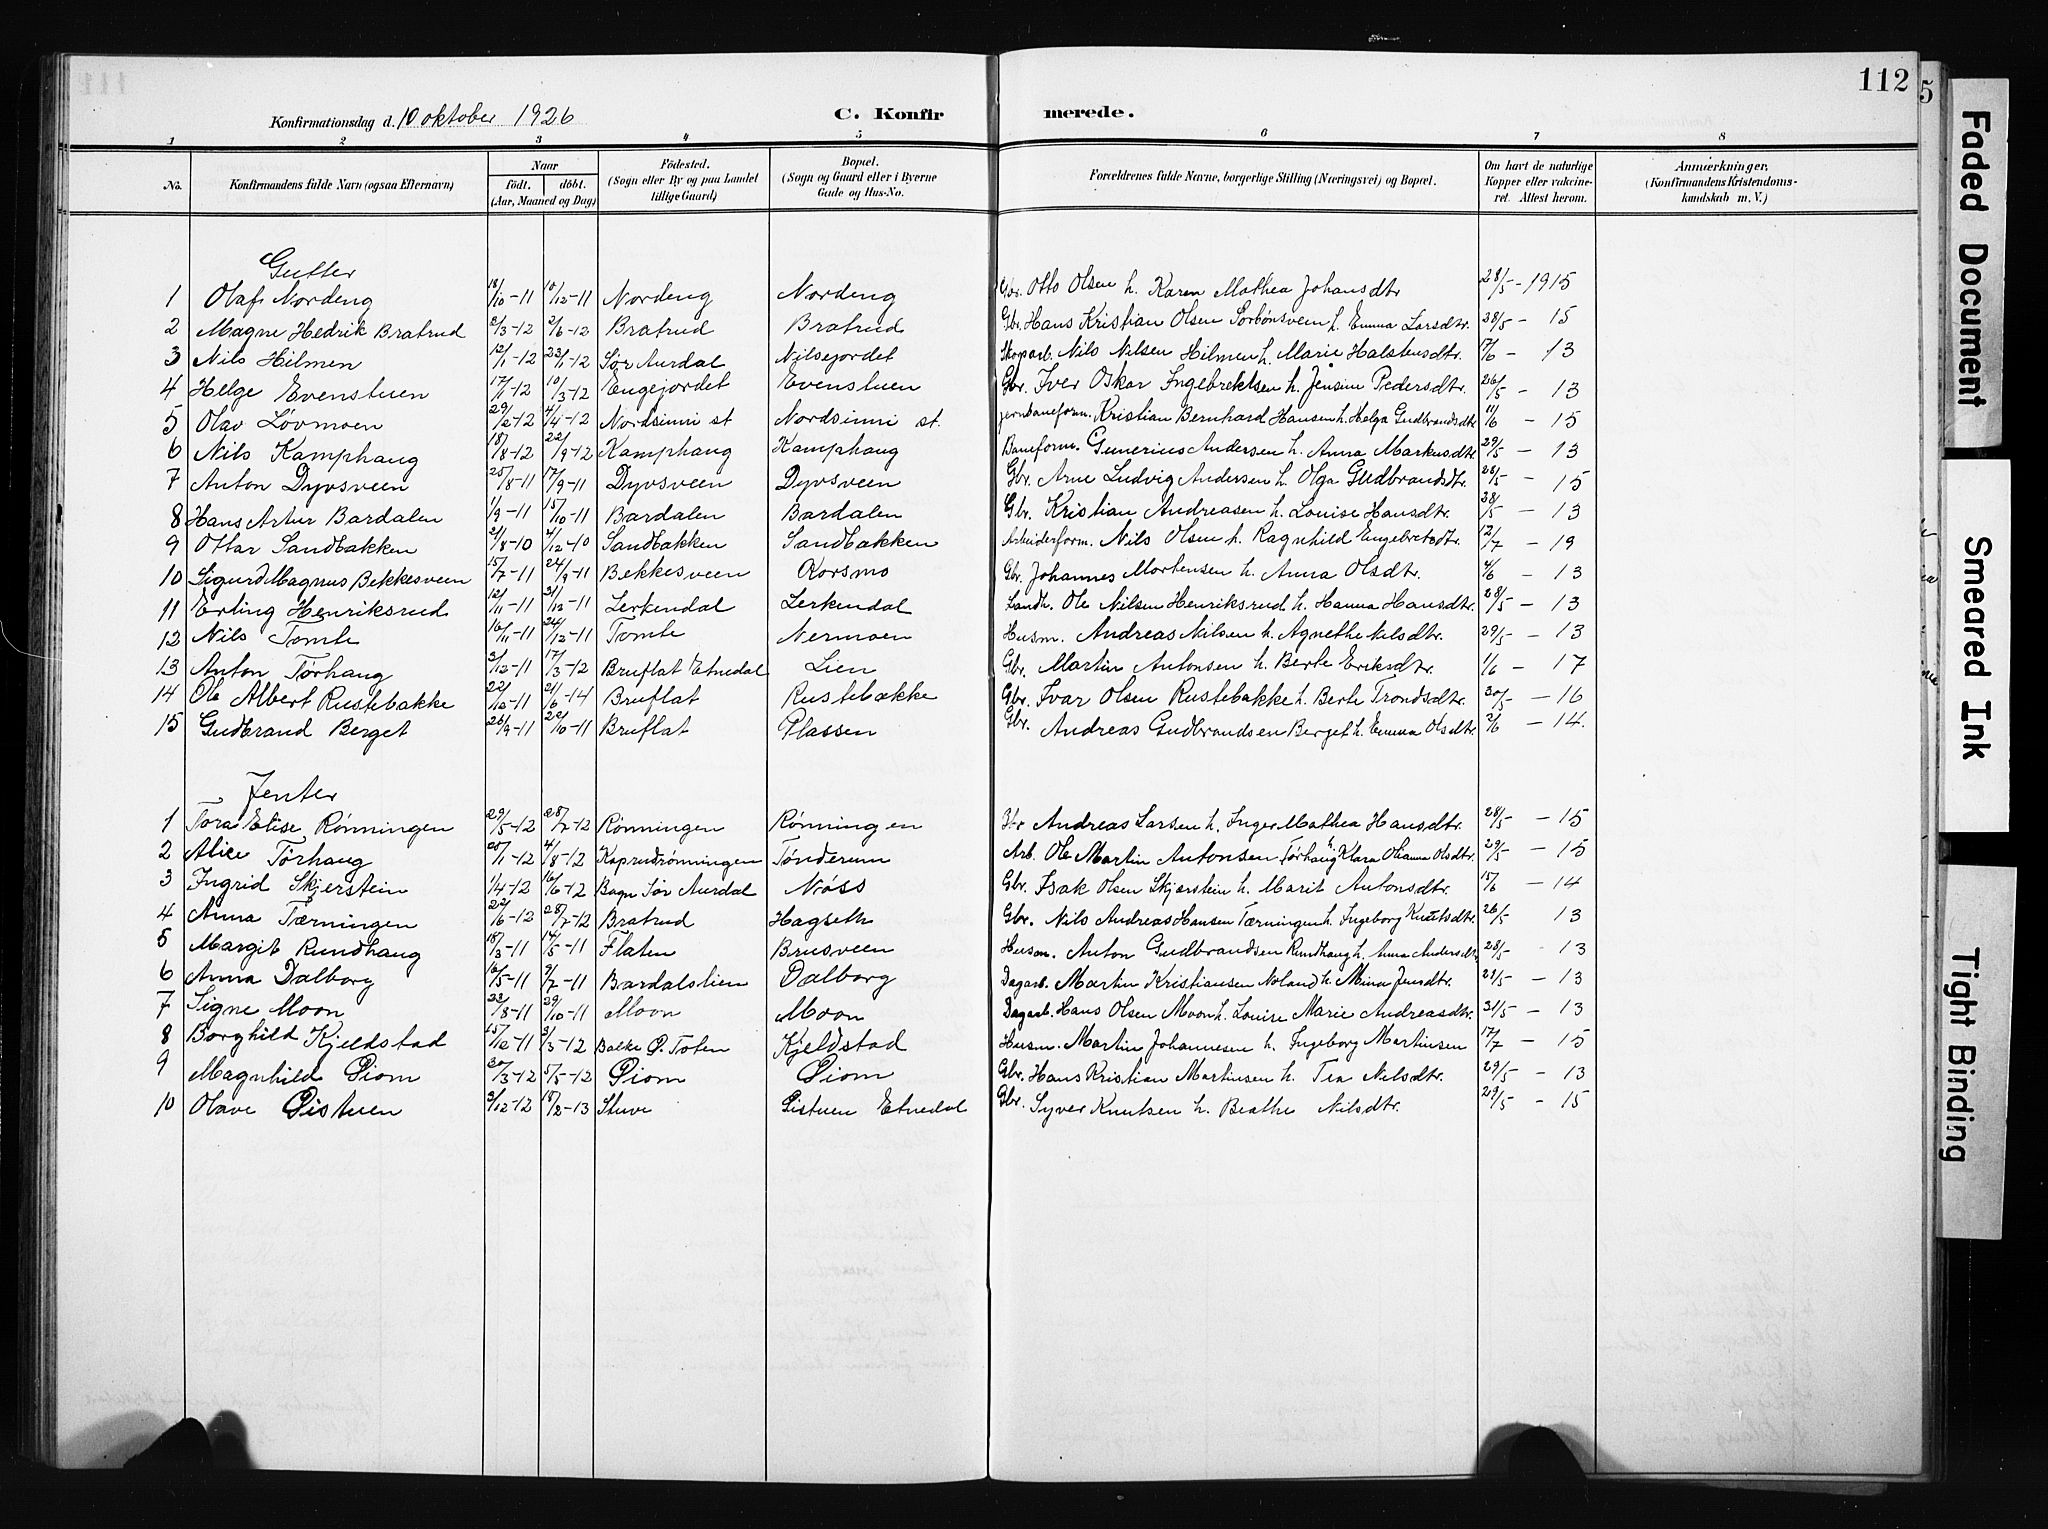 112
5
Konfirmationsdag d. 10 oktober 1926 C. Konfirmerede.
1 2 3 4 5 6 7 8
No. Konfirmandens fulde Navn (ogsaa Efternavn) Naar født. døbt. (Aar, Maaned og Dag) Fødested. (Sogn eller By og paa Landet tillige Gaard) Bopæl. (Sogn og Gaard eller i Byerne Gade og Hus-No. Forældrenes fulde Navne, borgerlige Stilling (Næringsvei) og Bopæl. Om havt de naturlige Kopper eller vakcineret. Attest herom. Anmærkninger. (Konfirmandens Kristendomskundskab m. V.)
Gutter
1 Olaf Nordeng 18/10-11 10/12-11 Nordeng Nordeng Gbr. Otto Olsen h. Karen Mathea Johansdtr 28/5-1915
2 Magne Hedrik Bratrud 2/3-12 2/6-12 Bratrud Bratrud Gbr. Hans Kristian Olsen Sorbønsveen h. Emma Larsdtr. 28/5 - 15
3 Nils Hilmen 12/1-12 23/1-12 Sør Aurdal Nilsejordet Skogarb. Nils Nilsen Hilmen h. Marie Halstensdtr. 17/6 - 13
4 Helge Evenstuen 17/1-12 10/3-12 Engejordet Evenstuen Gbr. Iver Oskar Ingebrektsen h. Jensine Pedersdtr. 26/5 - 13
5 Olav Løvmoen 29/2-12 4/4-12 Nordsinni st Nordsinni st. jernbaneform. Kristian Bernhard Hansen h. Helga Gudbrandsdtr 11/6 - 15
6 Nils Kamphaug 18/8-12 22/9-12 Kamphaug Kamphaug Baneform. Gunerius Andersen h. Anna Markusdtr 29/5 - 13
7 Anton Dyvsveen 25/8-11 17/9-11 Dyvsveen Dyvsveen Gbr. Arne Ludvig Andersen h. Olga Gudbrandsdtr. 28/5 - 15
8 Hans Artur Bardalen 1/9-11 15/10-11 Bardalen Bardalen Gbr. Kristian Andreasen h. Louise Hansdtr. 28/5 - 13
9 Ottar Sandbakken 21/8-10 4/12-10 Sandbakken Sandbakken Arbeiderform. Nils Olsen h. Ragnhild Engebretsdtr. 12/7 - 19
10 Sigurd Magnus Bekkesveen 15/7-11 24/9-11 Bekkesveen Korsmo Gbr. Johannes Mortensen h. Anna Olsdtr. 4/6 - 13
11 Erling Henriksrud 12/11-11 31/12-11 Lerkendal Lerkendal Landh. Ole Nilsen Henriksrud h. Hanna Hansdtr. 28/5 - 13
12 Nils Tomle 16/11-11 24/12-11 Tomle Nermoen Husm. Andreas Nilsen h. Agnethe Nilsdtr. 29/5 - 13
13 Anton Tørhaug 3/12-11 17/3-12 Bruflat Etnedal Lien Gbr. Martin Antonsen h. Berte Eriksdtr. 1/6 - 17
14 Ole Albert Rustebakke 22/12-11 21/6-14 Bruflat Rustebakke Gbr. Ivar Olsen Rustebakke h. Berte Trondsdtr. 30/5 - 16
15 Gudbrand Berget 26/9-11 22/10-11 Bruflat Plassen Gbr. Andreas Gudbrandsen Berget h. Emma Olsdtr. 2/6 - 14.
Jenter
1 Tora Elise Rønningen 29/5-12 28/7-12 Rønningen Rønningen Andreas Larsen h. Inger Mathea Hansdtr. 28/5 - 15
2 Alice Tørhaug 20/1-12 4/8-12 Kaprudrønningen Tønderum Arb. Ole Martin Antonsen Tørhaug h. Klara Olianna Olsdtr. 29/5 - 15
3 Ingrid Skjerstein 1/4-12 16/6-12 Bagn Sør Aurdal Nøss Gbr. Isak Olsen Skjerstein h. Marit Antonsdtr. 15/6 - 14
4 Anna Tærningen 22/6-12 28/7-12 Bratrud Hagseth Gbr. Nils Andreas Hansen Tærningen h. Ingeborg Knutsdtr. 26/5 13
5 Margit Rundhaug 18/3-11 14/5-11 Flaten Brusveen Husm. Anton Gudbrandsen Rundhaug h. Anna Andersdtr 28/5 - 13
6 Anna Dalborg 16/5-11 9/7-11 Bardalslien Dalborg Dagarb. Martin Kristiansen Noland h. Mina Jensdtr. 29/5 - 13
7 Signe Moon 23/8-11 29/10-11 Moon Moon Dagarb. Hans Olsen Moon h. Louise Marie Andreasdtr. 31/5 - 13
8 Borghild Kjeldstad 15/12-11 3/3-12 Balke Ø. Toten Kjeldstad Husm. Martin Johannesen h. Ingeborg Martinsen 17/7 - 15
9 Magnhild Diom 20/3-12 5/5-12 Diom Diom Gbr. Hans Kristian Martinsen h. Tea Nilsdtr. 29/5 - 13
10 Olave Distuen 3/12-12 18/2-13 Stuve Distuen Etnedal Gbr. Syver Knutsen h. Beathe Nilsdtr. 29/5 - 15
Faded Document
Smeared Ink
Tight Binding